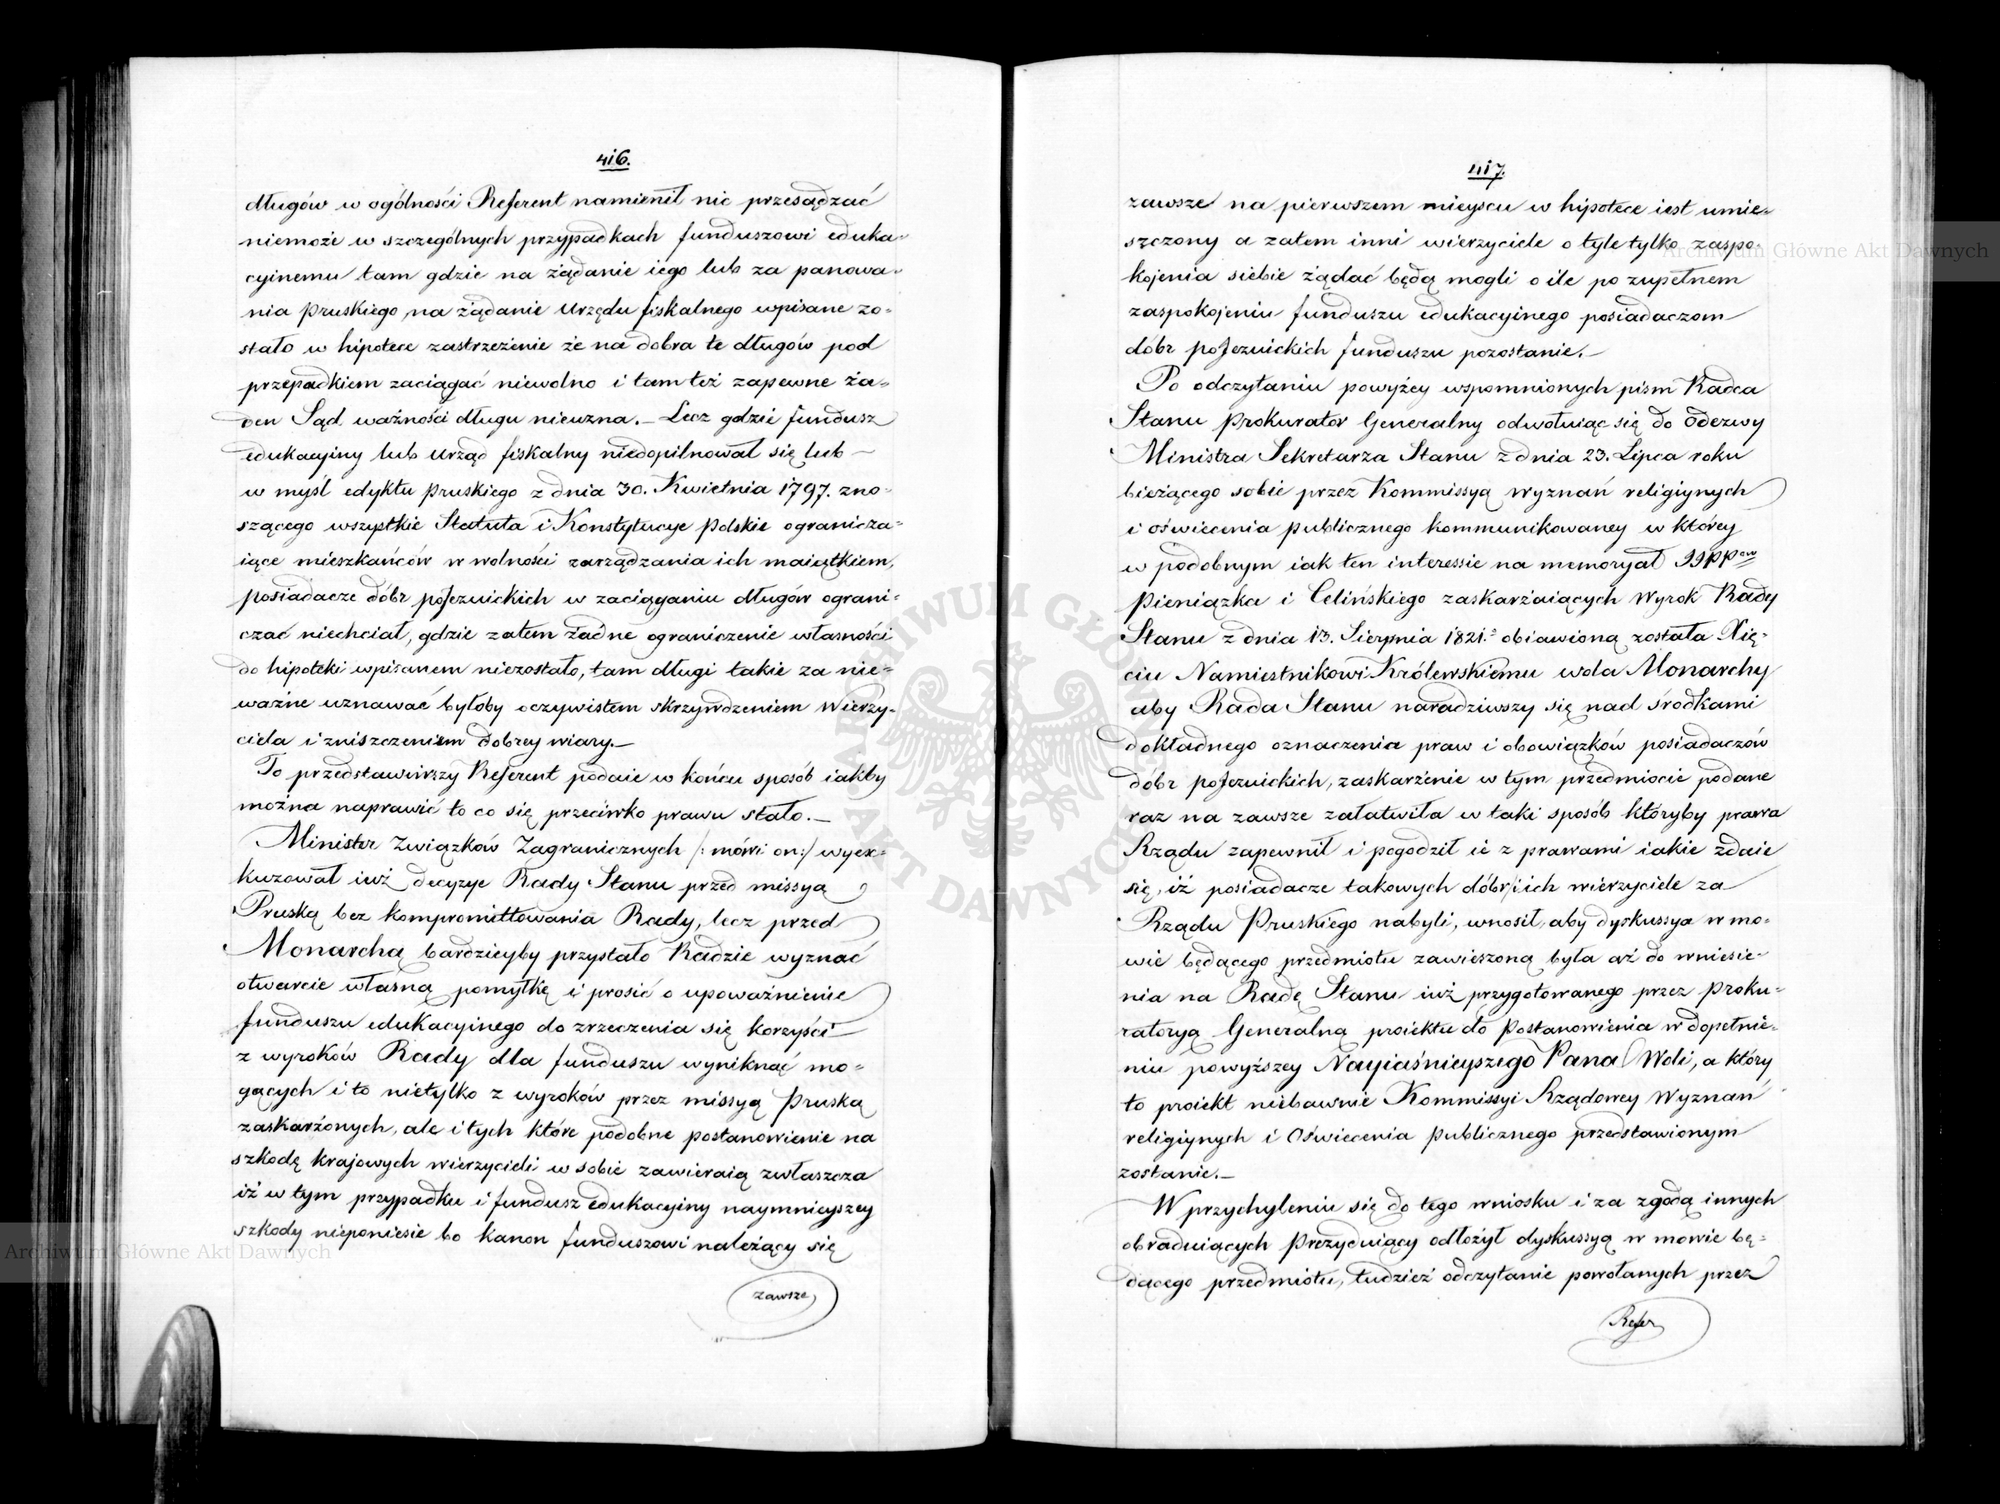 416.
długów w ogólności Referent namienił nic przesądzać
niemoże w szczególnych przypadkach funduszowi eduka-
cyinemu tam gdzie na żądanie iego lub za panowa-
nia Pruskiego na żądanie Urzędu fiskalnego wpisane zo-
stało w hipotece zastrzeżenie że na dobra te długów pod
przepadkiem zaciągać niewolno i tam też zapewne ża-
den Sąd ważności długu nieuzna.— Lecz gdzie fundusz
edukacyiny lub Urząd fiskalny niedopilnował się lub —
w myśl edyktu Pruskiego z dnia 30. Kwietnia 1797. zno-
szącego wszystkie Statuta i Konstytucye Polskie ogranicza-
iące mieszkańców w wolności zarządzania ich maiątkiem,
posiadacze dóbr pojezuickich w zaciąganiu długów ograni-
czać niechciał, gdzie zatem żadne ograniczenie własności
do hipoteki wpisanem niezostało, tam długi takie za nie-
ważne uznawać byłoby oczywistem skrzywdzeniem Wierzy-
ciela i zniszczeniem dobrey wiary.—
To przedstawiwszy Referent podaie w końcu sposób iakby
można naprawić to co się przeciwko prawu stało.—
Minister Związków Zagranicznych /: mówi on:/ wyex-
kuzował iuż decyzye Rady Stanu przed missyą
Pruską bez kompromittowania Rady, lecz przed
Monarchą bardzieyby przystało Radzie wyznać
otwarcie własną pomyłkę i prosić o upoważnienie
funduszu edukacyinego do zrzeczenia się korzyści
z wyroków Rady dla funduszu wyniknąć mo-
gących i to nietylko z wyroków przez missyą Pruską
zaskarżonych, ale i tych które podobne postanowienie na
szkodę krajowych wierzycieli w sobie zawieraią zwłaszcza
iż w tym przypadku i fundusz edukacyiny naymnieyszey
szkody nieponiesie bo kanon funduszowi należący się
zawsze
417.
zawsze na pierwszem mieyscu w hipotece iest umie-
szczony a zatem inni wierzyciele o tyle tylko zaspo-
kojenia siebie żądać będą mogli o ile po zupełnem
zaspokojeniu funduszu edukacyinego posiadaczom
dóbr pojezuickich funduszu pozostanie.—
Po odczytaniu powyżey wspomnionych pism Radca
Stanu Prokurator Generalny odwołuiąc się do Odezwy
Ministra Sekretarza Stanu z dnia 23. Lipca roku
bieżącego sobie przez Kommissyą Wyznań religiynych
i oświecenia publicznego kommunikowaney w którey
w podobnym iak ten interessie na memoryał JJPPów
Pieniązka i Celińskiego zaskarżaiących Wyrok Rady
Stanu z dnia 13. Sierpnia 1821. obiawioną została Xię-
ciu Namiestnikowi Królewskiemu wola Monarchy
aby Rada Stanu naradziwszy się nad środkami
dokładnego oznaczenia praw i obowiązków posiadaczów
dóbr pojezuickich, zaskarżenie w tym przedmiocie podane
raz na zawsze załatwiła w taki sposób któryby prawa
Rządu zapewnił i pogodził ie z prawami iakie zdaie
się, iż posiadacze takowych dóbr, i ich wierzyciele za
Rządu Pruskiego nabyli, wnosił, aby dyskussya w mo-
wie będącego przedmiotu zawieszoną była aż do wniesie-
nia na Radę Stanu iuż przygotowanego przez Proku-
ratoryą Generalną proiektu do Postanowienia w dopełnie-
niu powyższey Nayiaśnieyszego Pana Woli, a który
to proiekt niebawnie Kommissyi Rządowey Wyznań
religiynych i Oświecenia Publicznego przedstawionym
zostanie.—
W przychyleniu się do tego wniosku i za zgodą innych
obraduiących Prezyduiący odłożył dyskussyą w mowie bę-
dącego przedmiotu, tudzież odczytanie powołanych przez
Refer
Archiwum Główne Akt Dawnych
Archiwum Główne Akt Dawnych
ARCHIWUM GŁÓWNE AKT DAWNYCH